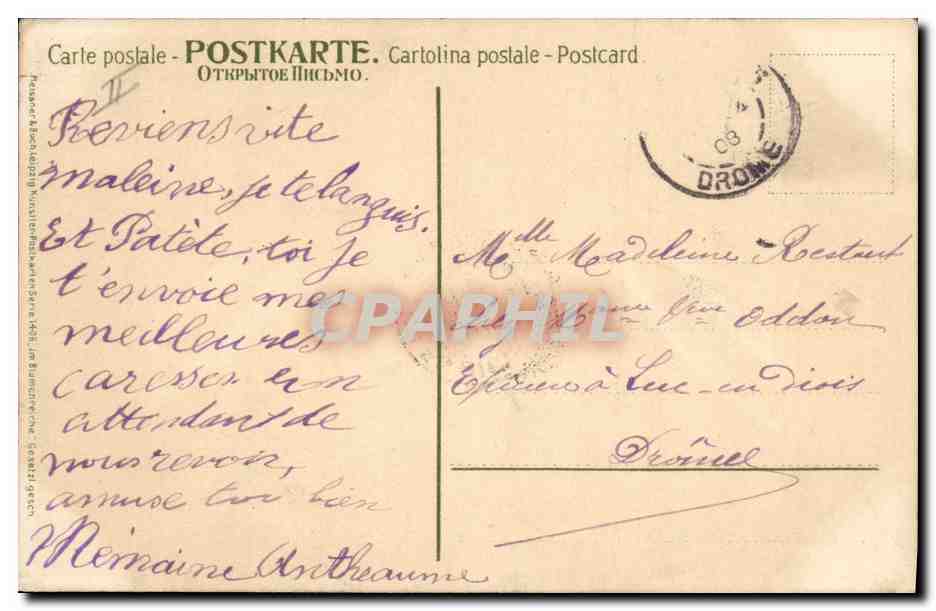 Carte postale - POSTKARTE. Cartolina postale - Postcard
ОТКРЫТОЕ ПИСЬМО.
II
Meissner & Buch, Leipzig Künstler-Postkarten Serie 1406 „Im Blumenreiche“ Gesetzl. gesch.
Reviens vite
maleine, je te languis.
Et Patète, toi je
t'envoie mes
meilleures
caresses en
attendant de
nous revoir,
amuse toi bien
Mémaine Antheaume
08
DROME
Mlle Madeleine Restaut
chez Mme Vve Oddon
à Luc-en-diois
Drôme
CPAPHIL